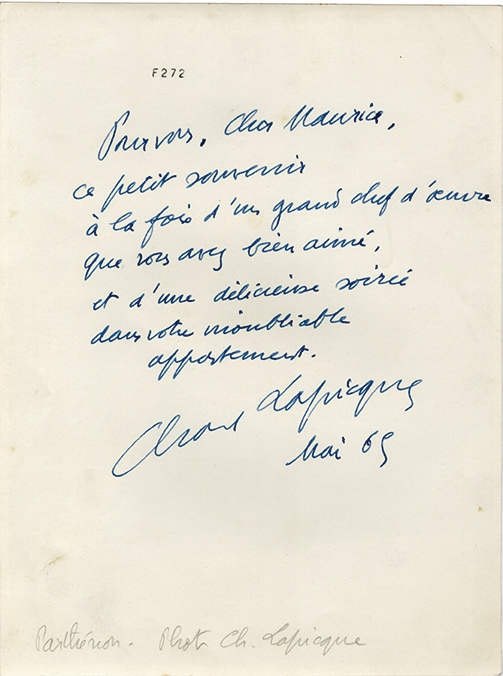 F272
Pour vous, cher Maurice,
ce petit souvenir
à la fois d'un grand chef d'œuvre
que vous avez bien aimé,
et d'une délicieuse soirée
dans votre inoubliable
appartement.
Charles Lapicque
Mai 65
Parthénon - Photo Ch. Lapicque